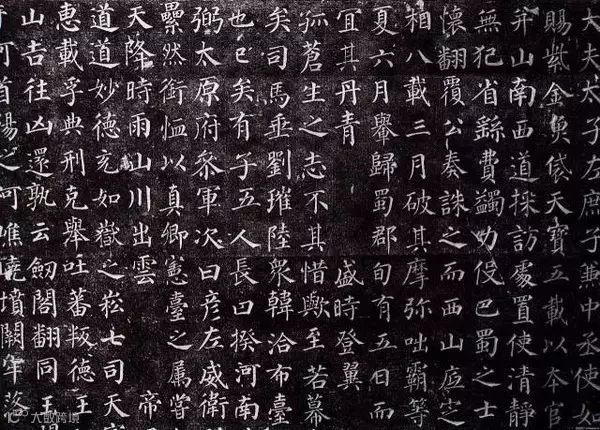 大夫太子左庶子兼中丞使如
賜紫金魚袋天寶五載以本官
并山南西道採訪處置使清靜
無犯省繇費蠲力役巴蜀之士
懷翻覆公奏誅之而西山底定
相八載三月破其摩弥咄霸等
夏六月轝歸蜀郡旬有五日而
宜其丹青 盛時登翼
孤蒼生之志不其惜歟至若幕
矣司馬垂劉璀陸衆韓洽布臺
也已矣有子五人長曰揆河南
弼太原府叅軍次曰彦左威衛
纍然銜恤以真卿憲臺之属嘗
天降時雨山川出雲 帝
道道妙德充如嶽之崧七司天
惠載孚典刑克舉吐蕃叛德王
山吉往凶還孰云劒閣翻同玉
河首陽之阿唯曉墳闕牢落